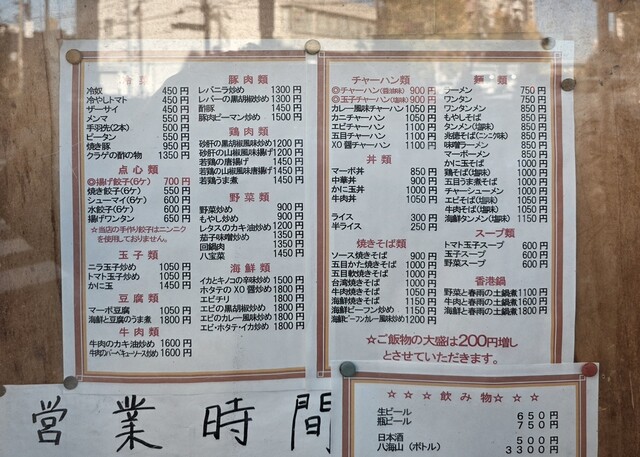 冷奴 450円
冷やしトマト 450円
ザーサイ 450円
メンマ 550円
手羽先(2本) 500円
ピータン 550円
焼き豚 950円
クラゲの酢の物 1350円
点心類
◎揚げ餃子(6ケ) 700円
焼き餃子(6ケ) 550円
シューマイ(6ケ) 600円
水餃子(6ケ) 600円
揚げワンタン 650円
☆当店の手作り餃子はニンニク
を使用しておりません。
玉子類
ニラ玉子炒め 1050円
トマト玉子炒め 1050円
かに玉 1450円
豆腐類
マーボ豆腐 1050円
海鮮と豆腐のうま煮 1800円
牛肉類
牛肉のカキ油炒め 1600円
牛肉のバーベキューソース炒め 1600円
豚肉類
レバニラ炒め 1300円
レバーの黒胡椒炒め 1300円
酢豚 1450円
豚肉ピーマン炒め 1500円
鶏肉類
砂肝の黒胡椒風味炒め 1200円
砂肝の山椒風味揚げ 1200円
若鶏の唐揚げ 1450円
若鶏の山椒風味唐揚げ 1450円
若鶏うま煮 1450円
野菜類
野菜炒め 900円
もやし炒め 900円
レタスのカキ油炒め 1200円
茄子味噌炒め 1350円
回鍋肉 1350円
八宝菜 1450円
海鮮類
イカとキノコの辛味炒め 1500円
ホタテのXO醤炒め 1800円
エビチリ 1800円
エビの黒胡椒炒め 1800円
エビのカレー風味炒め 1800円
エビ・ホタテ・イカ炒め 1800円
チャーハン類
◎チャーハン(醤油味) 900円
◎玉子チャーハン(塩味) 900円
カレー風味チャーハン 1050円
カニチャーハン 1100円
エビチャーハン 1100円
五目チャーハン 1100円
XO醤チャーハン 1100円
丼類
マーボ丼 850円
中華丼 900円
かに玉丼 1100円
牛肉丼 1050円
ライス 300円
半ライス 250円
焼きそば類
ソース焼きそば 900円
五目かた焼きそば 1000円
五目軟焼きそば 1000円
台湾焼きそば 1000円
牛肉焼きそば 1050円
海鮮焼きそば 1150円
海鮮ビーフン炒め 1150円
海鮮ビーフンカレー風味炒め 1200円
麺類
ラーメン 750円
ワンタン 750円
ワンタンメン 850円
もやしそば 850円
タンメン(塩味) 850円
味噌ラーメン 850円
マーボーメン 850円
かに玉そば 1000円
鶏そば(塩味) 1000円
五目うま煮そば 1000円
チャーシューメン 1050円
エビそば(塩味) 1050円
牛肉そば(塩味) 1050円
海鮮タンメン(塩味) 1150円
スープ類
トマト玉子スープ 600円
玉子スープ 600円
野菜スープ 600円
香港鍋
野菜と春雨の土鍋煮 1100円
牛肉と春雨の土鍋煮 1600円
海鮮と春雨の土鍋煮 1800円
☆ご飯物の大盛は200円増し
とさせていただきます。
営業時間
☆☆☆飲み物☆☆☆
生ビール 650円
瓶ビール 750円
日本酒 500円
八海山(ボトル) 3300円